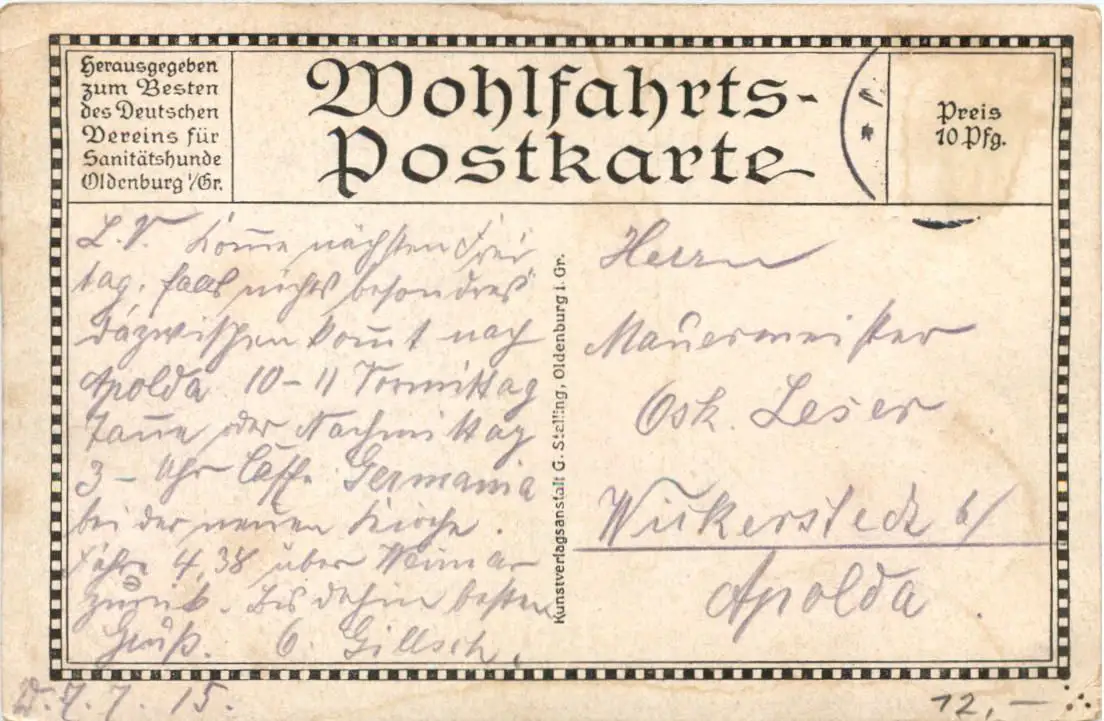 Herausgegeben
zum Besten
des Deutschen
Vereins für
Sanitätshunde
Oldenburg i/Gr.
Wohlfahrts-
Postkarte
Preis
10 Pfg.
L. V. Kom̄e nächsten Frei
tag, falls nichts besondres
dazwischen kom̄t nach
Apolda 10-11 Vormittag
oder Nachmittag
3- Uhr Caffe Germania
bei der neuen Kirche.
Fahre 4,38 über Weimar
zurück. Bis dahin besten
Gruß. O. Gillsch.
D. 7.7.15.
Kunstverlagsanstalt G. Stalling, Oldenburg i. Gr.
Herrn
Mauermeister
Osk. Leser
Wickerstedt b/
Apolda
12,-